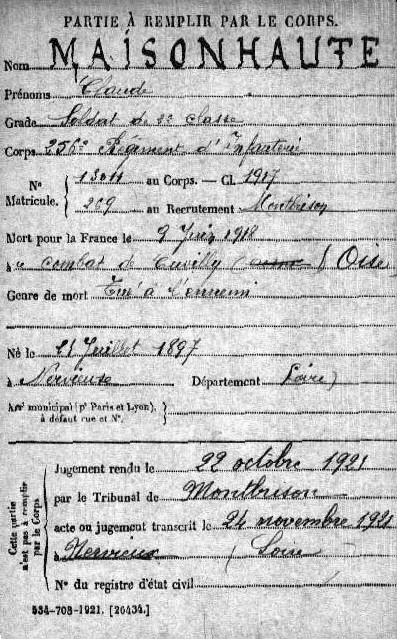 PARTIE À REMPLIR PAR LE CORPS.
Nom MAISONHAUTE
Prénoms Claude
Grade Soldat de 2e classe
Corps 256e Régiment d'Infanterie
No 13011 au Corps. — Cl. 1917
Matricule. 209 au Recrutement Montbrison
Mort pour la France le 9 Juin 1918
à combat de Cuvilly Oise
Genre de mort Tué à l'ennemi
Né le Juillet 1897
à Département Loire
Arrt municipal (pr Paris et Lyon),
à défaut rue et No.
Cette partie
n'est pas à remplir
par le Corps
Jugement rendu le 22 octobre 1921
par le Tribunal de Montbrison
acte ou jugement transcrit le 24 novembre 1921
à Nervieux (Loire
No du registre d'état civil
534-708-1921. [26434.]